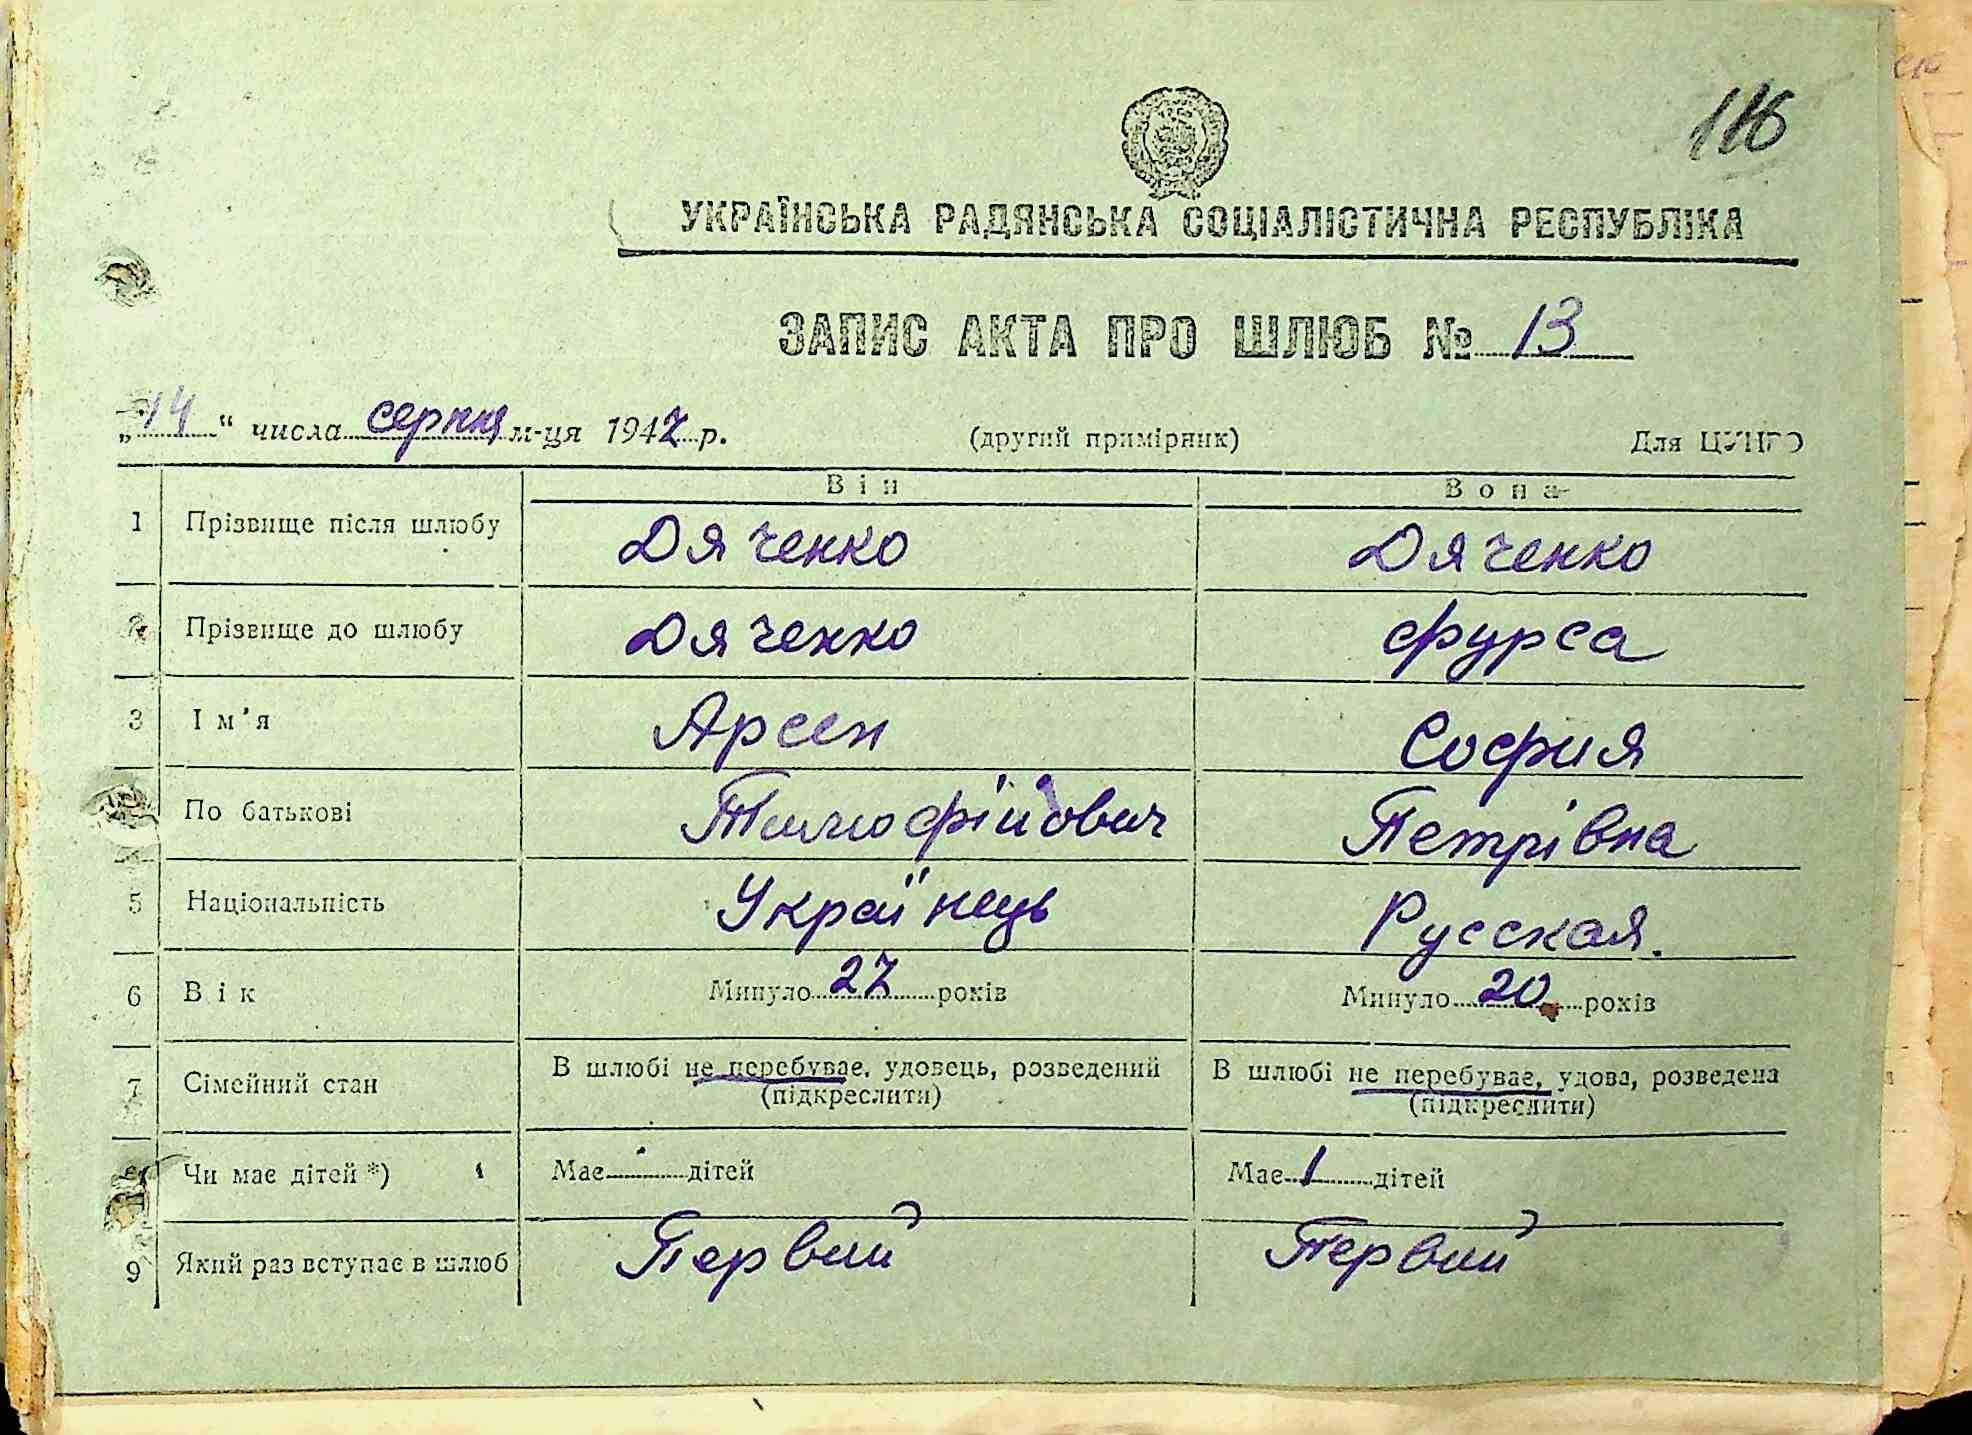 116
УКРАЇНСЬКА РАДЯНСЬКА СОЦІАЛІСТИЧНА РЕСПУБЛІКА
ЗАПИС АКТА ПРО ШЛЮБ № 13
„14“ числа серпня м-ця 1947 р. (другий примірник) Для ЦУНГО
Він Вона
1 Прізвище після шлюбу Дяченко Дяченко
2 Прізвище до шлюбу Дяченко Фурса
3 Ім'я Арсен София
По батькові Тимофійович Петрівна
5 Національність Українець Русская.
6 Вік Минуло 27 років Минуло 20 років
7 Сімейний стан В шлюбі не перебуває, удовець, розведений В шлюбі не перебуває, удова, розведена
(підкреслити) (підкреслити)
Чи має дітей *) Має - дітей Має 1 дітей
9 Який раз вступає в шлюб Первий Первий